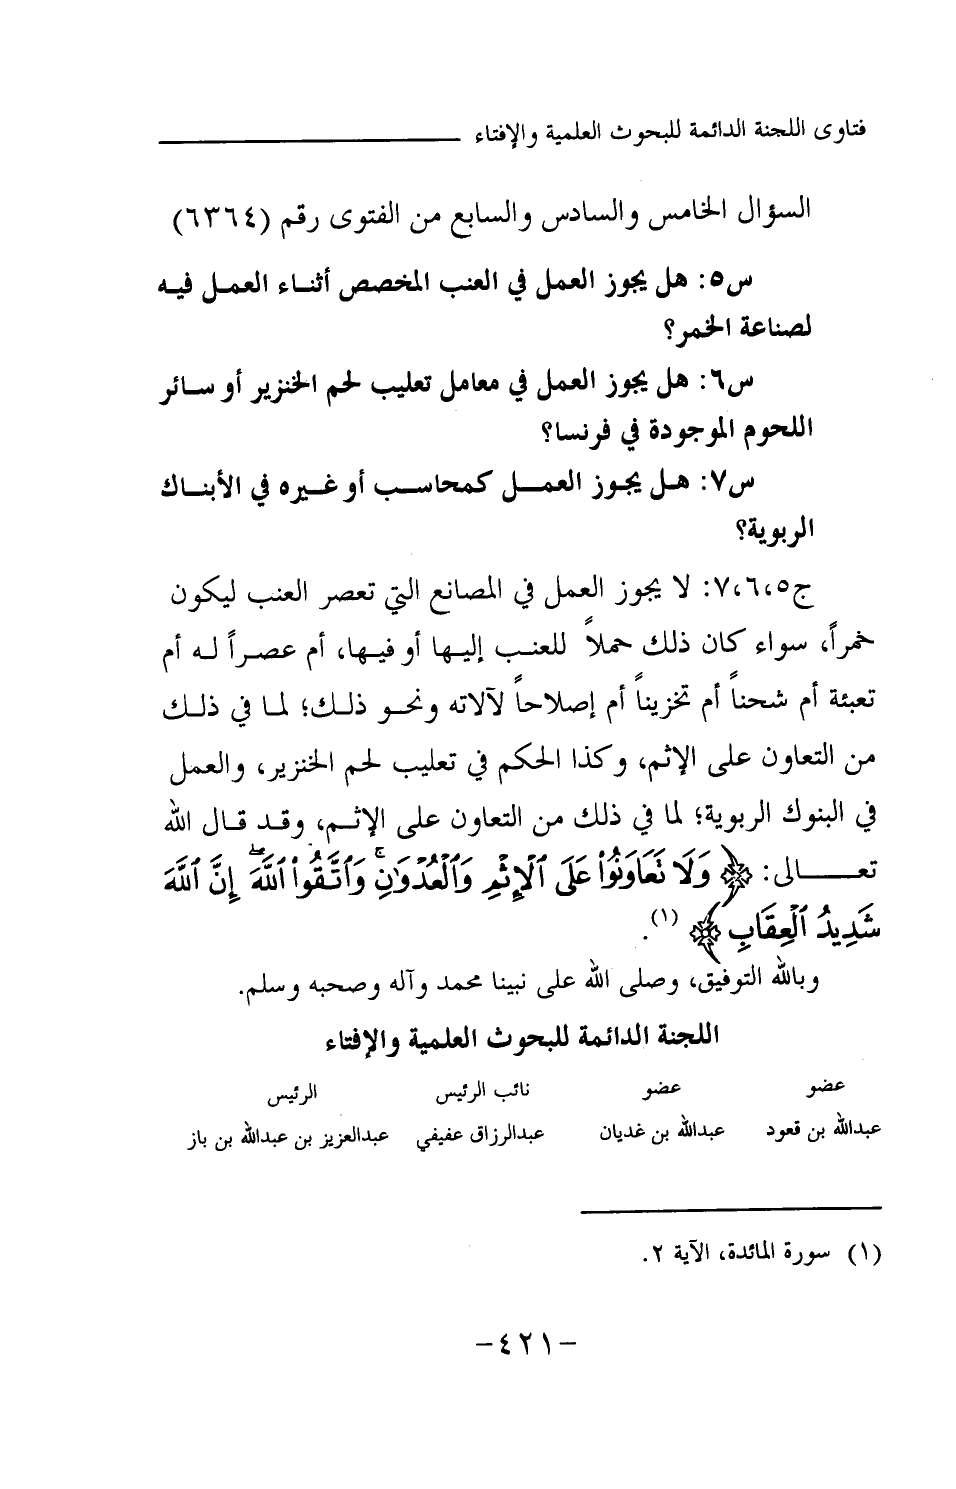 فتاوى اللجنة الدائمة للبحوث العلمية والإفتاء
السؤال الخامس والسادس والسابع من الفتوى رقم (٦٣٦٤)
س٥: هل يجوز العمل في العنب المخصص أثناء العمل فيه
لصناعة الخمر؟
س٦: هل يجوز العمل في معامل تعليب لحم الخنزير أو سائر
اللحوم الموجودة في فرنسا؟
س٧: هل يجوز العمل كمحاسب أو غيره في الأبناك
الربوية؟
ج٥،٦،٧: لا يجوز العمل في المصانع التي تعصر العنب ليكون
خمراً، سواء كان ذلك حملاً للعنب إليها أو فيها، أم عصراً له أم
تعبئة أم شحناً أم تخزيناً أم إصلاحاً لآلاته ونحو ذلك؛ لما في ذلك
من التعاون على الإثم، وكذا الحكم في تعليب لحم الخنزير، والعمل
في البنوك الربوية؛ لما في ذلك من التعاون على الإثم، وقد قال الله
تعالى: ﴿وَلَا تَعَاوَنُوا۟ عَلَى ٱلْإِثْمِ وَٱلْعُدْوَٰنِ ۚ وَٱتَّقُوا۟ ٱللَّهَ ۖ إِنَّ ٱللَّهَ
شَدِيدُ ٱلْعِقَابِ﴾ (١).
وبالله التوفيق، وصلى الله على نبينا محمد وآله وصحبه وسلم.
اللجنة الدائمة للبحوث العلمية والإفتاء
عضو عضو نائب الرئيس الرئيس
عبدالله بن قعود عبدالله بن غديان عبدالرزاق عفيفي عبدالعزيز بن عبدالله بن باز
(١) سورة المائدة، الآية ٢.
-٤٢١-